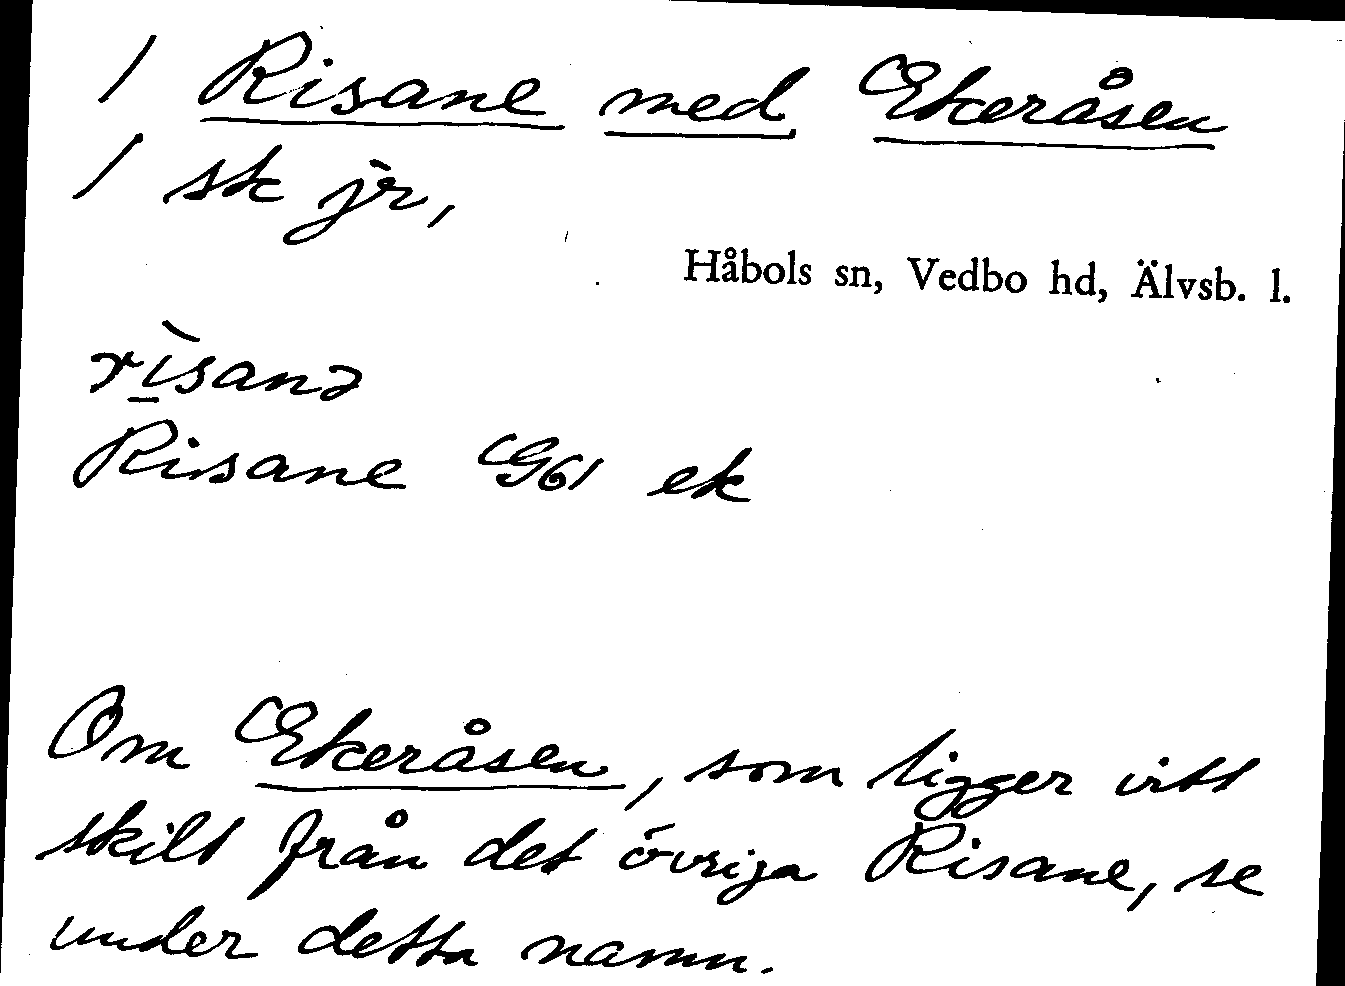 / Risane med Ekeråsen
/ sk jr,
Håbols sn, Vedbo hd, Älvsb. l.
rìsanə
Risane G61 ek
Om Ekeråsen, som ligger vitt
skilt från det övriga Risane, se
under detta namn.